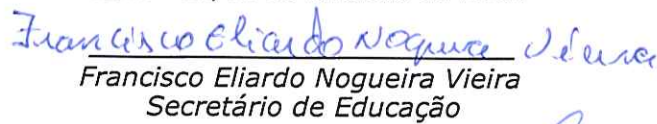 Francisco Eliardo Nogueira Vieira
Francisco Eliardo Nogueira Vieira
Secretário de Educação